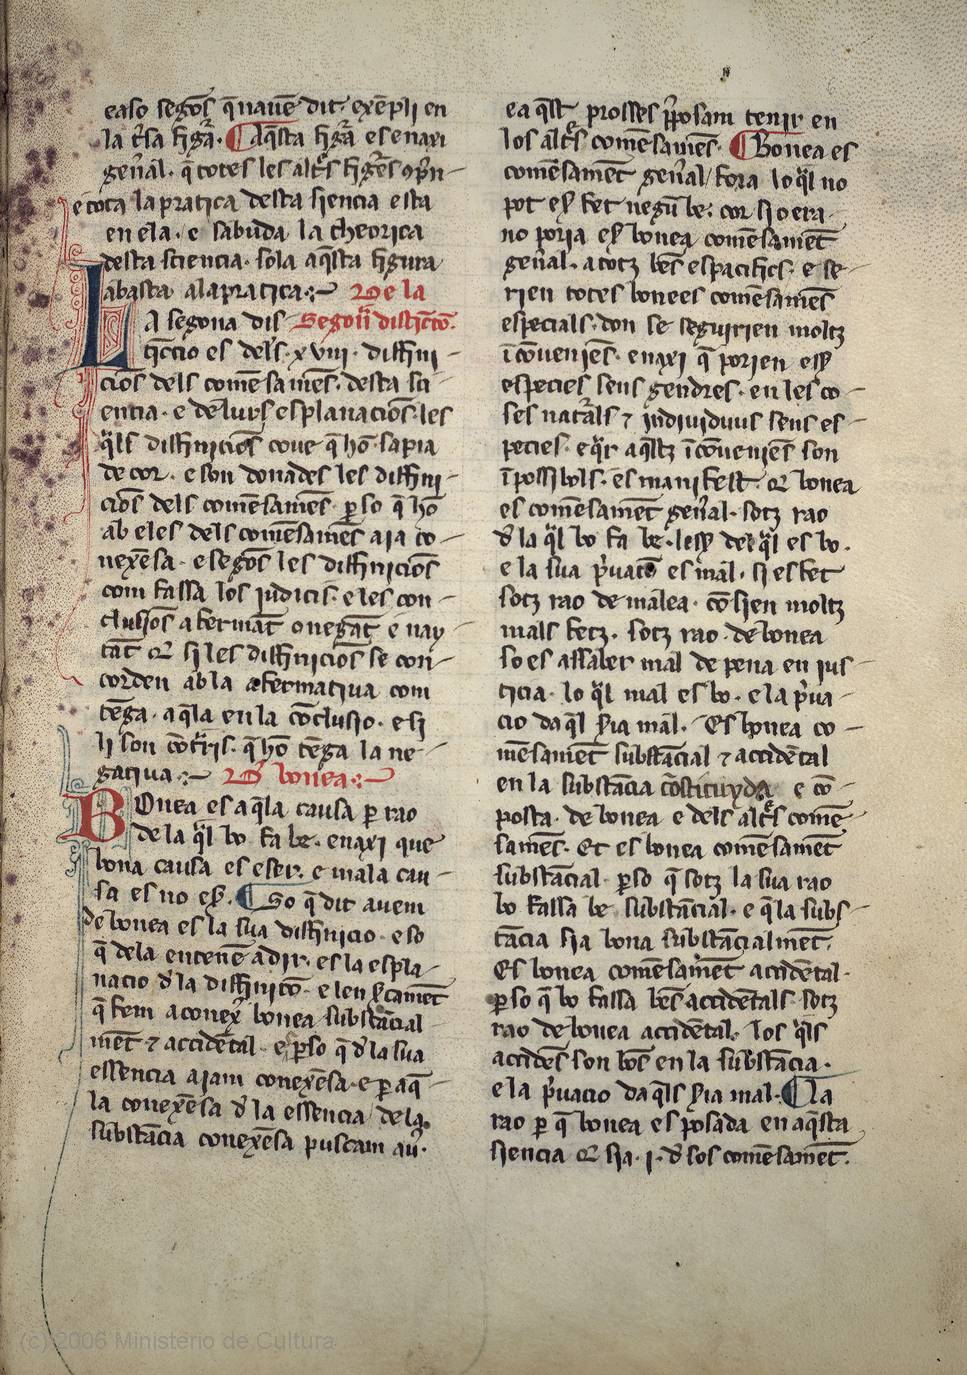 easo segos q̄ nauē dit exēpli en
la t̄sa figᵃ. Aqsta figᵃ es enaxi
gen̄al. q̄ totes les altᵉs figᵉs 9pn̄-
e tota la pratica desta siencia esta
en ela. e sabuda la theorica
desta sciencia. sola aqsta figura
abasta a la pratica. De la
LA segona dis Segon distīcto.
tīccio es dels. xviii. diffini-
cios dels comēsamēs. desta sci-
encia. e de lurs esplanacios. les
qͣls difiniciōs coue q̄ hō. sapia
de cor. e son donades les diffini-
cios dels comēsamēs. p̱ so q̄ hō
ab eles dels comēsamēs aia co-
nexēsa. e segos les diffinicios
com fassa los iudicis. e les con-
clusios afermāt o negāt e uay-
tāt q̄ si les diffinicios se con-
corden ab la afermatiua com
tēga. aqla en la cōclusio. e si
li son cōtᵃris. q̄ hō tēga la ne-
gatiua. D̄ bonea.
BOnea es aqla causa p̱ rao
de la qͣl bo fa be. enaxi que
bona causa es eser. e mala cau-
sa es no es̄. So q̄ dit auem
de bonea es la sua diffinicio. e so
q̄ dela entenē a dir. es la espla-
nacio d̄ la diffinitō. e len ꝑcamēt
q̄ fem a conex̄ bonea substācial
mēt ⁊ accidētal. e p̱ so q̄ d̄ la sua
essencia aiam conexēsa. e p̱ aq̄
la conexēsa d̄ la essencia de la
substācia conexēsa puscam au̓.
ea qst̄ prosses pͥposam tenir en
los altᵉs comēsamēs. Bonea es
comēsamēt gen̄al fora lo qͣl no
pot es̄ fet negū be. cor si o era.
no poria es̄ bonea comēsamēt
gen̄al. a totz bēs espacifics. e se-
rien totes bonees comēsamēs
especials. don se seguirien moltz
īcōueniēs. enaxi q̄ porien es̄
especies sens gendres. en les co-
ses natᵃls ⁊ indiuiduus sens es-
pecies. e qͣr aqstz īcōueniēs son
īpossibols. es manifest. q̄ bonea
es comēsamēt gen̄al. sotz rao
d̄ la qͣl bo fa be. les̄ del qͣl es bo.
e la sua pͥuacio es mal. si es fet
sotz rao de malea. cōsien moltz
mals fetz. sotz rao de bonea
so es assaber mal de pena en ius-
ticia. lo qͣl mal es bo. e la pͥua-
cio daqͣl s̓ia mal. Es bonea co-
mēsamēt substācial ⁊ accidētal
en la substācia cōstituyda e cō-
posta. de bonea e dels altᵉs comē-
samēs. Et es bonea comēsamēt
substācial. p̱ so q̄ sotz la sua rao
bo fassa be substācial. e q̄ la subs-
tācia sia bona substācialmēt.
Es bonea comēsamēt accidētal.
p̱ so q̄ bo fassa bēs accidētals sotz
rao de bonea accidētal. los qͣls
acidēs son bōs en la substācia.
e la pͥuacio daqͣls s̓ia mal. La
rao p̱ q̄ bonea es posada en aqsta
siencia q̄ sia. i. d̄ sos comēsamēt.
(c) 2006 Ministerio de Cultura